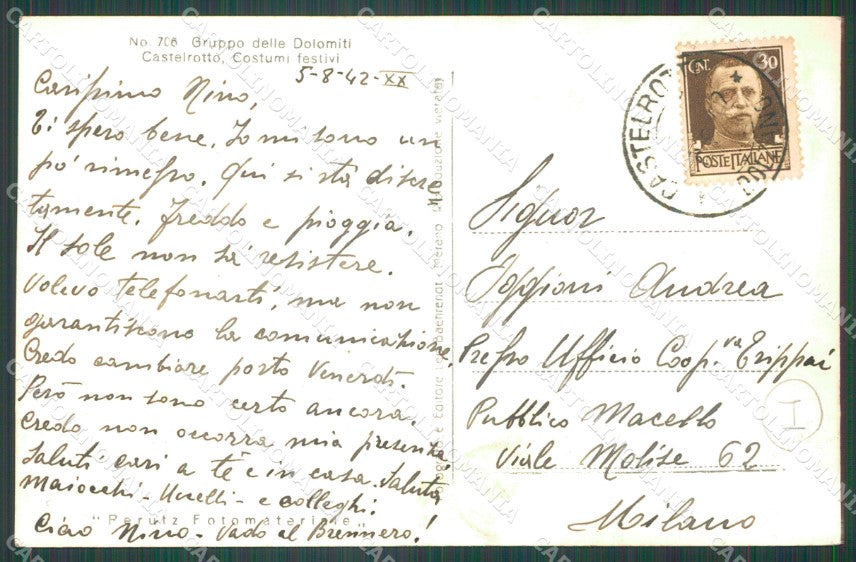 No. 706 Gruppo delle Dolomiti
Castelrotto, Costumi festivi
5-8-42-XX
Carissimo Nino,
Ti spero bene. Io mi sono un
po' rimesso. Qui si sta discre
tamente. Freddo e pioggia.
Il sole non sa resistere.
Volevo telefonarti, ma non
garantiscono la comunicazione.
Credo cambiare posto Venerdì.
Però non sono certo ancora.
Credo non occorra mia presenza
Saluti cari a te e in casa. Saluta
Maiocchi - Uccelli - e colleghi.
Ciao Nino - Vado al Brennero!
"Perutz Fotomateriale"
Riproduzione vietata
CASTELROTTO
CENT. 30
POSTE ITALIANE
Signor
Oggioni Andrea
Presso Ufficio Coop.va Trippai
Pubblico Macello
Viale Molise 62
Milano
I
CARTOLINOMANIA